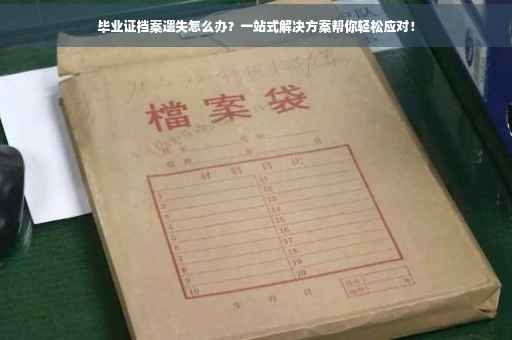 毕业证档案遗失怎么办？一站式解决方案帮你轻松应对！
檔案袋
材料目次
1 11
2 12
3 13
4 14
5 15
6 16
7 17
8 18
9 19
10 20
年 月 日